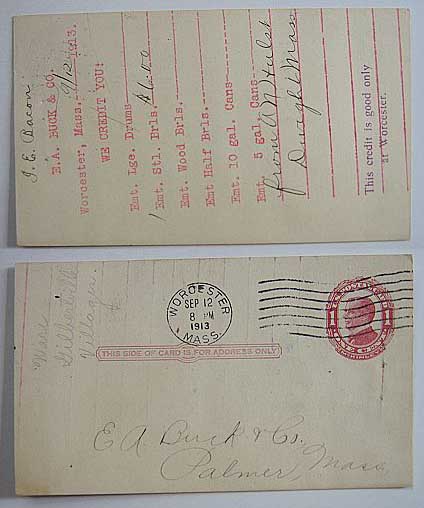 J. E. Bacon
E.A. BUCK & CO.
Worcester, Mass. 9/12 1913.
WE CREDIT YOU:
Emt. Lge. Drums
1 Emt. Stl. Brls.
Emt. Wood Brls.
Emt Half Brls.
Emt. 10 gal. Cans
Emt. 5 gal. Cans
from A M
Dwight Mass
This credit is good only
at Worcester.
Ware
Gilbertville
Village
WORCESTER
SEP 12
8 PM
1913
MASS.
1 1
THIS SIDE OF CARD IS FOR ADDRESS ONLY
E A Buck & Co.
Palmer, Mass.